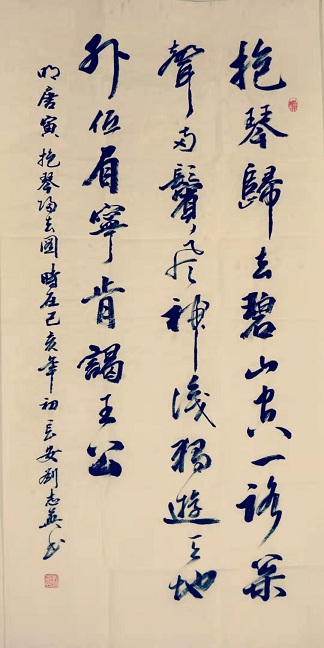 抱琴歸去碧山空一路松
聲兩鬢風神識獨遊天地
外低眉寧肯謁王公
明唐寅抱琴歸去圖時在己亥年初長安劉志英書